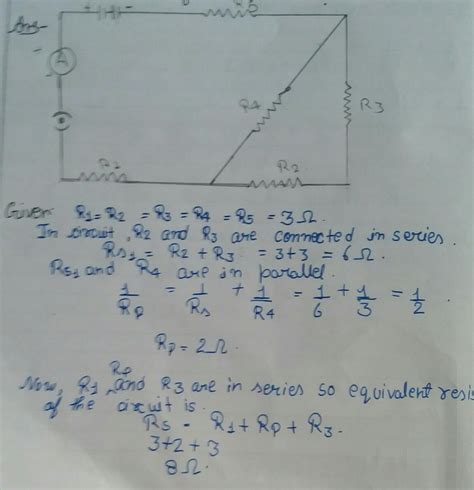 Ans-
R5
A
R4
R3
R1
R2
Given: R1 = R2 = R3 = R4 = R5 = 3Ω.
In circuit, R2 and R3 are connected in series.
Rs1 = R2 + R3 = 3+3 = 6Ω.
Rs1 and R4 are in parallel.
1/Rp = 1/Rs + 1/R4 = 1/6 + 1/3 = 1/2
Rp = 2Ω.
Now, R1, Rp and R3 are in series so equivalent resis
of the circuit is.
Rs = R1 + Rp + R3.
3+2+3
8Ω.